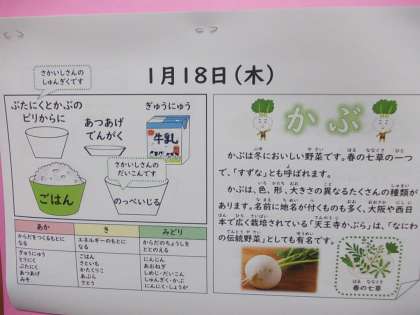 1月18日(木)
さかいしさんの
しゅんぎくです
ぶたにくとかぶの
ピリからに
あつあげ
でんがく
ぎゅうにゅう
牛乳
ごはん
さかいしさんの
だいこんです
のっぺいじる
あか
き
みどり
からだをつくるもとに
なる
エネルギーのもとに
なる
からだのちょうしを
ととのえる
ぎゅうにゅう
とりにく
ぶたにく
あつあげ
みそ
ごはん
さといも
かたくりこ
あぶら
さとう
にんじん
あおねぎ
しめじ・だいこん
しゅんぎく・かぶ
にんにく・しょうが
かぶ
かぶは冬においしい野菜です。春の七草の一つ
で、「すずな」とも呼ばれます。
かぶは、色、形、大きさの異なるたくさんの種類が
あります。名前に地名が付くものも多く、大阪や西日
本で広く栽培されている「天王寺かぶら」は、「なにわ
の伝統野菜」としても有名です。
春の七草